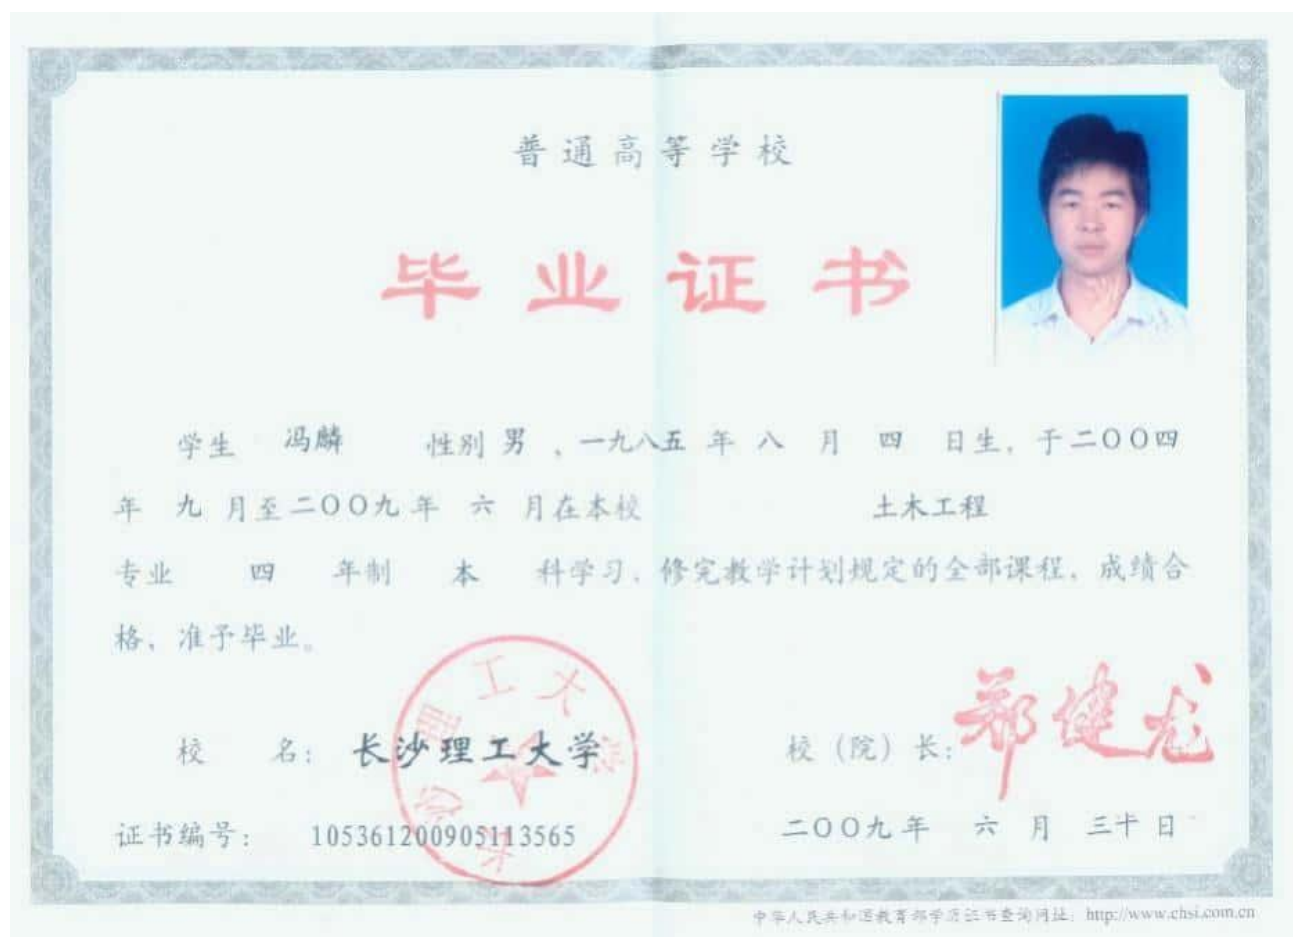 普通高等学校
毕业证书
学生 冯麟 性别 男 、一九八五 年 八 月 四 日生，于二〇〇四
年 九 月至二〇〇九年 六 月在本校 土木工程
专业 四 年制 本 科学习，修完教学计划规定的全部课程，成绩合
格，准予毕业。
校 名： 长沙理工大学
校（院）长： 郑健龙
长沙理工大学
证书编号： 105361200905113565
二〇〇九年 六 月 三十日
中华人民共和国教育部学历证书查询网址：http://www.chsi.com.cn